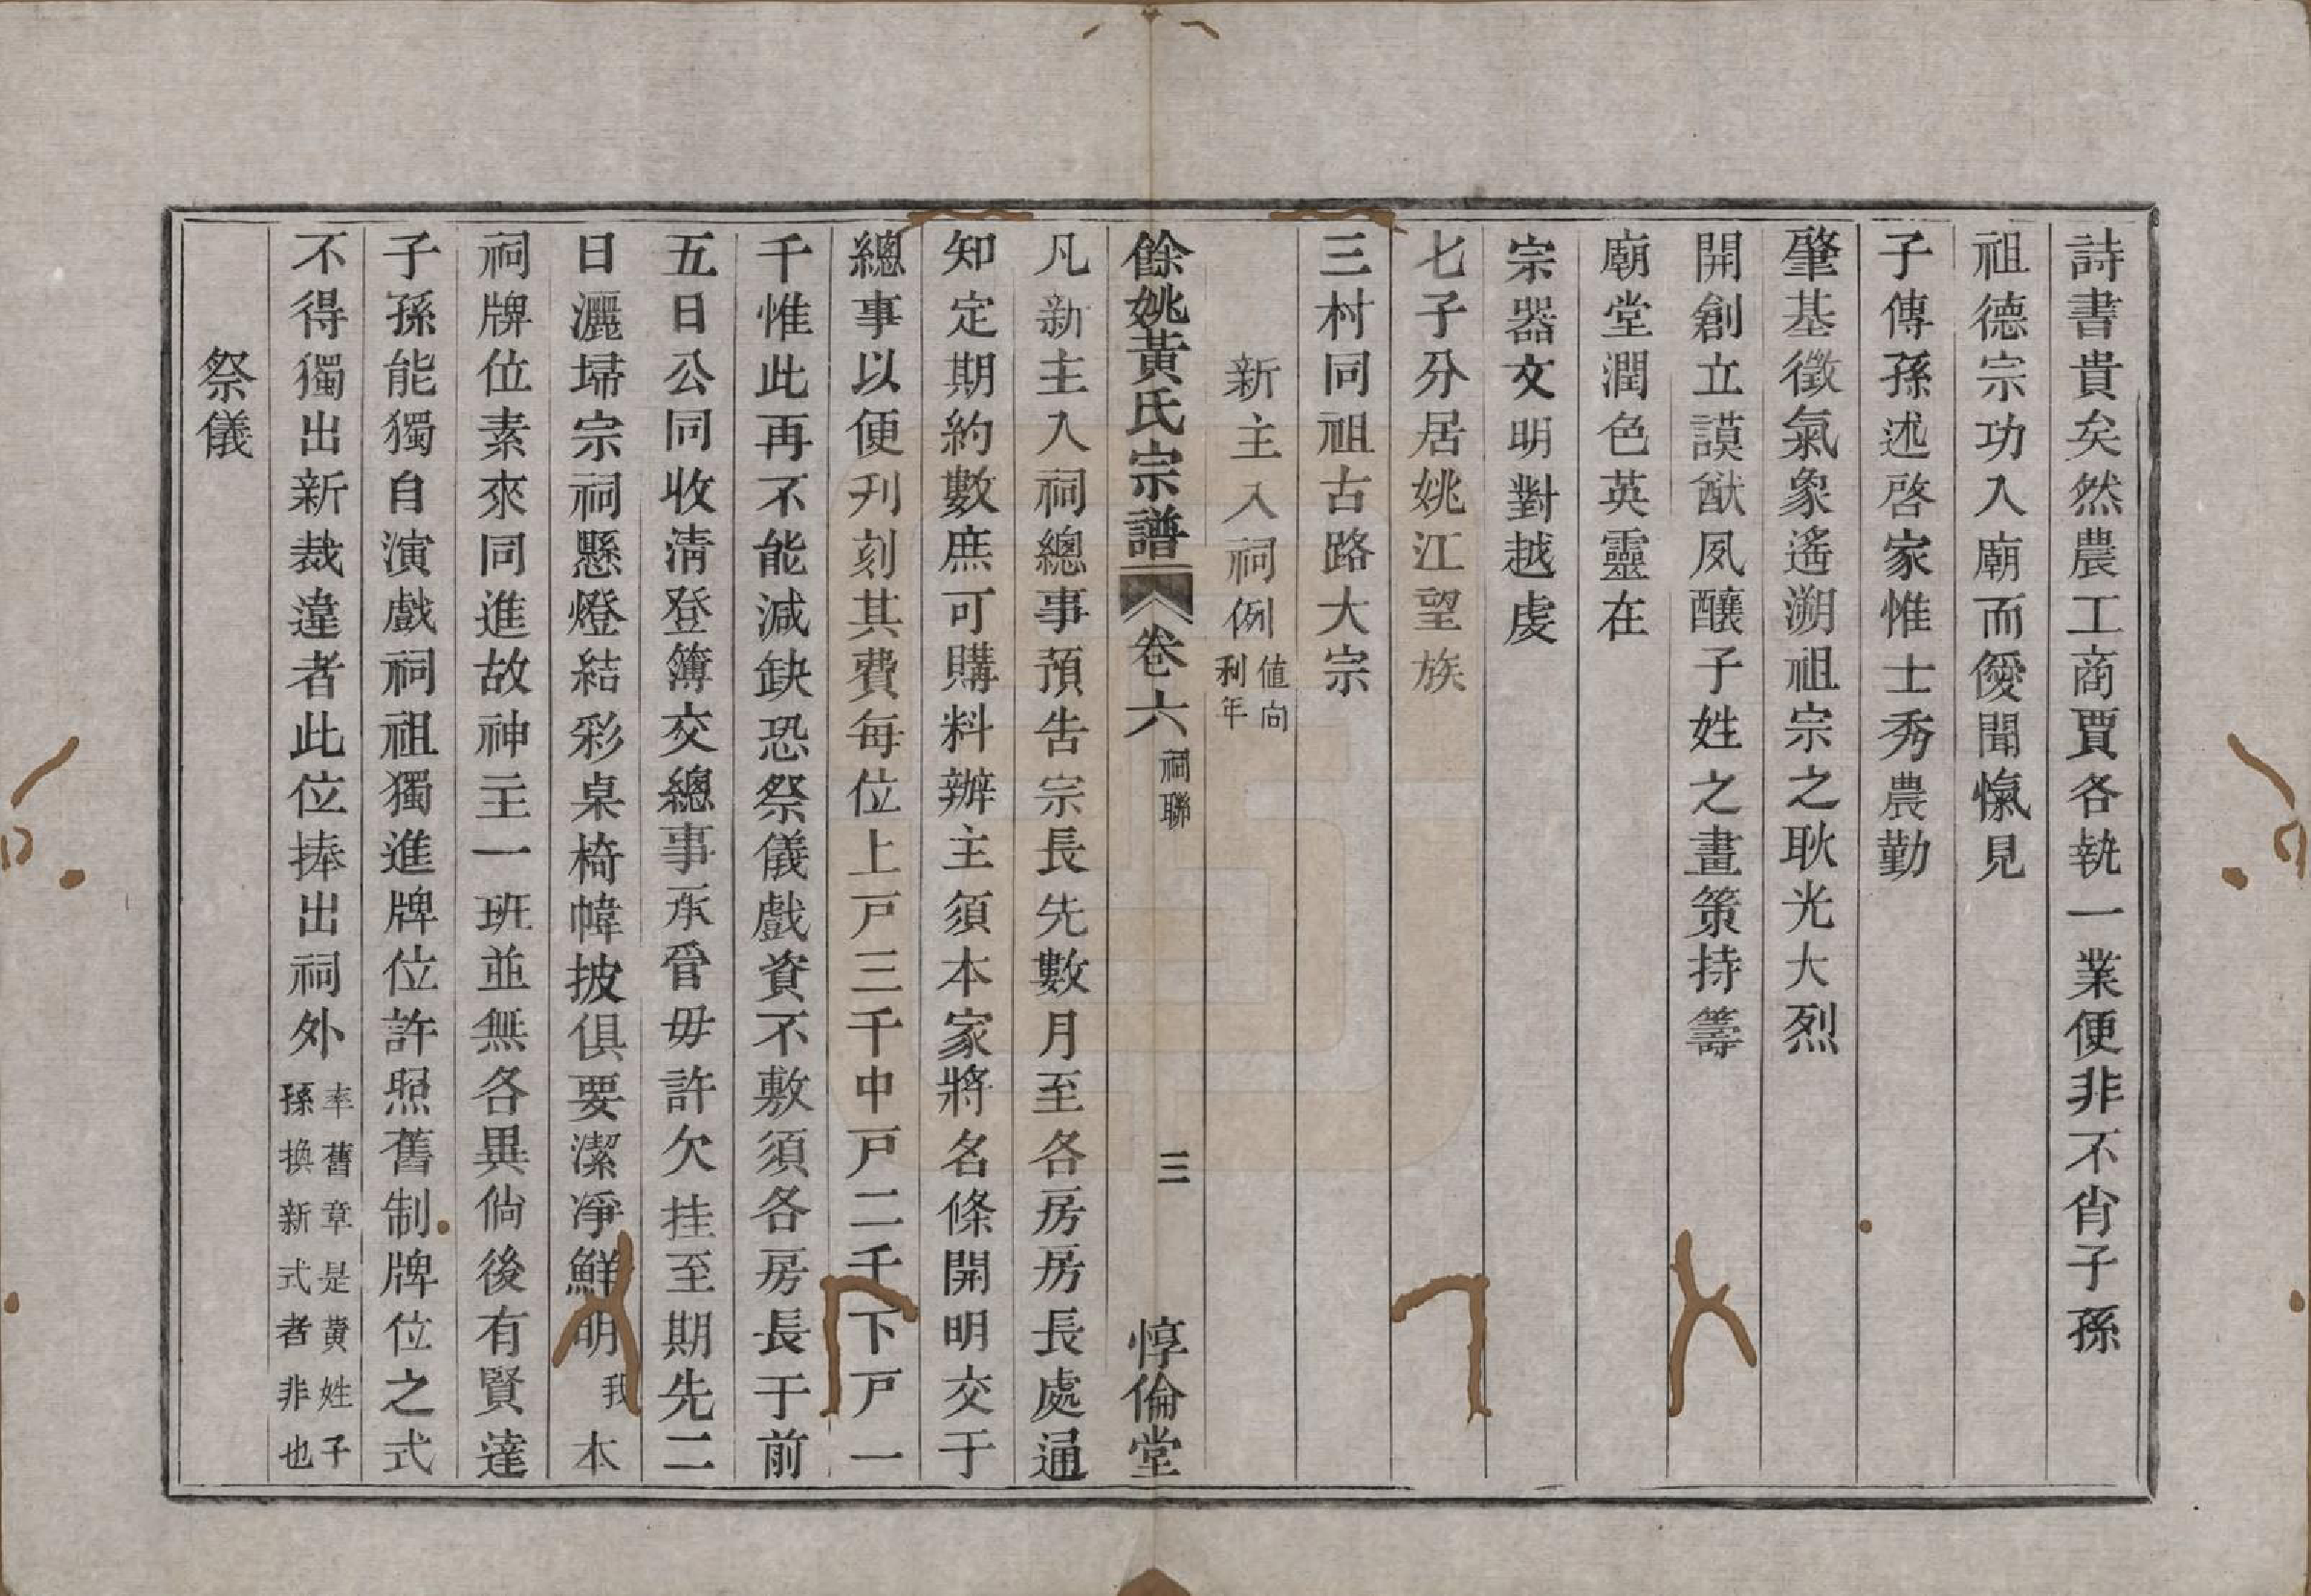 詩書貴矣然農工商賈各執一業便非不肖子孫
祖德宗功入廟而僾聞愾見
子傳孫述啓家惟士秀農勤
肇基徵氣象遙溯祖宗之耿光大烈
開創立謨猷夙釀子姓之畫策持籌
廟堂潤色英靈在
宗器文明對越虔
七子分居姚江望族
三村同祖古路大宗
新主入祠例值向利年
餘姚黃氏宗譜 卷六 祠聯 三 惇倫堂
凡新主入祠總事預告宗長先數月至各房房長處通
知定期約數庶可購料辦主須本家將名條開明交于
總事以便刋刻其費每位上戸三千中戸二千下戸一
千惟此再不能減缺恐祭儀戲資不敷須各房長于前
五日公同收清登簿交總事承管毋許欠挂至期先二
日灑埽宗祠懸燈結彩桌椅幃披俱要潔淨鮮明我本
祠牌位素來同進故神主一班並無各異倘後有賢達
子孫能獨自演戲祠祖獨進牌位許照舊制牌位之式
不得獨出新裁違者此位捧出祠外率舊章是黃姓子孫換新式者非也
祭儀